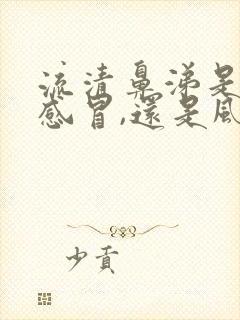 流清鼻涕是
感冒,還是風
少貢